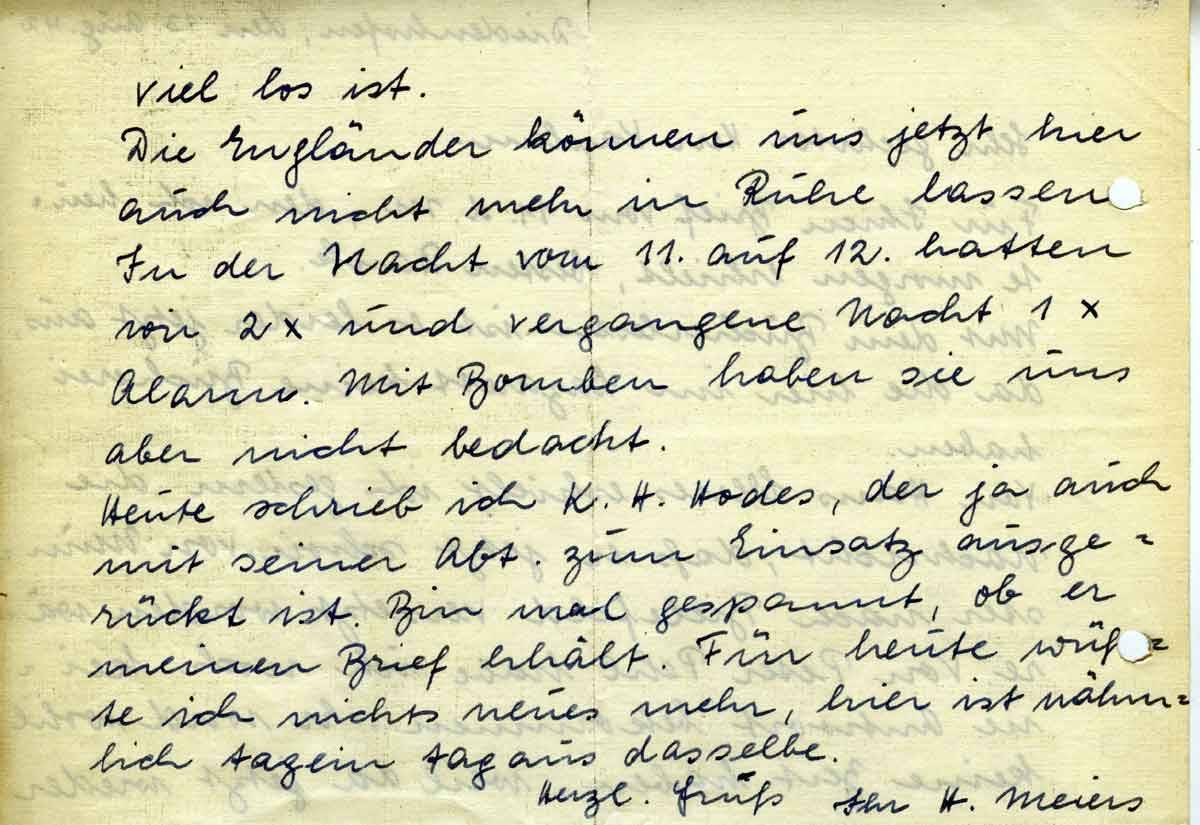 viel los ist.
Die Engländer können uns jetzt hier
auch nicht mehr in Ruhe lassen
In der Nacht vom 11. auf 12. hatten
wir 2 x und vergangene Nacht 1 x
Alarm. Mit Bomben haben sie uns
aber nicht bedacht.
Heute schrieb ich K. H. Hodes, der ja auch
mit seiner Abt. zum Einsatz ausge=
rückt ist. Bin mal gespannt, ob er
meinen Brief erhält. Für heute wüß=
te ich nichts neues mehr, hier ist nähm=
lich tagein tagaus dasselbe.
Herzl. Gruß Ihr H. Meiers